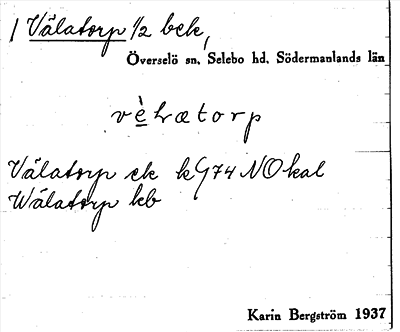 / Välatorp 1/2 bek,
Överselö sn, Selebo hd, Södermanlands län
vèlrætorp
Välatorp ek kG74 NO kal
Wälatorp kb
Karin Bergström 1937